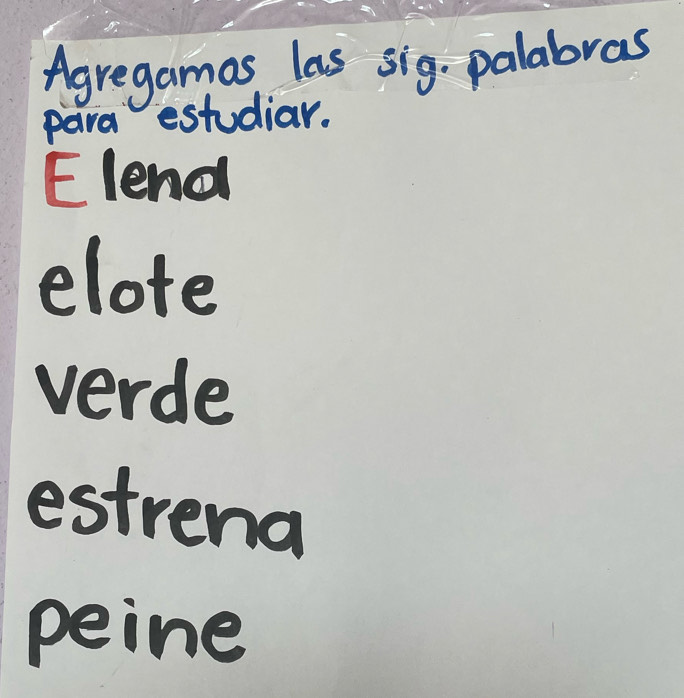 Agregamos las sig. palabras
para estudiar.
Elena
elote
verde
estrena
peine